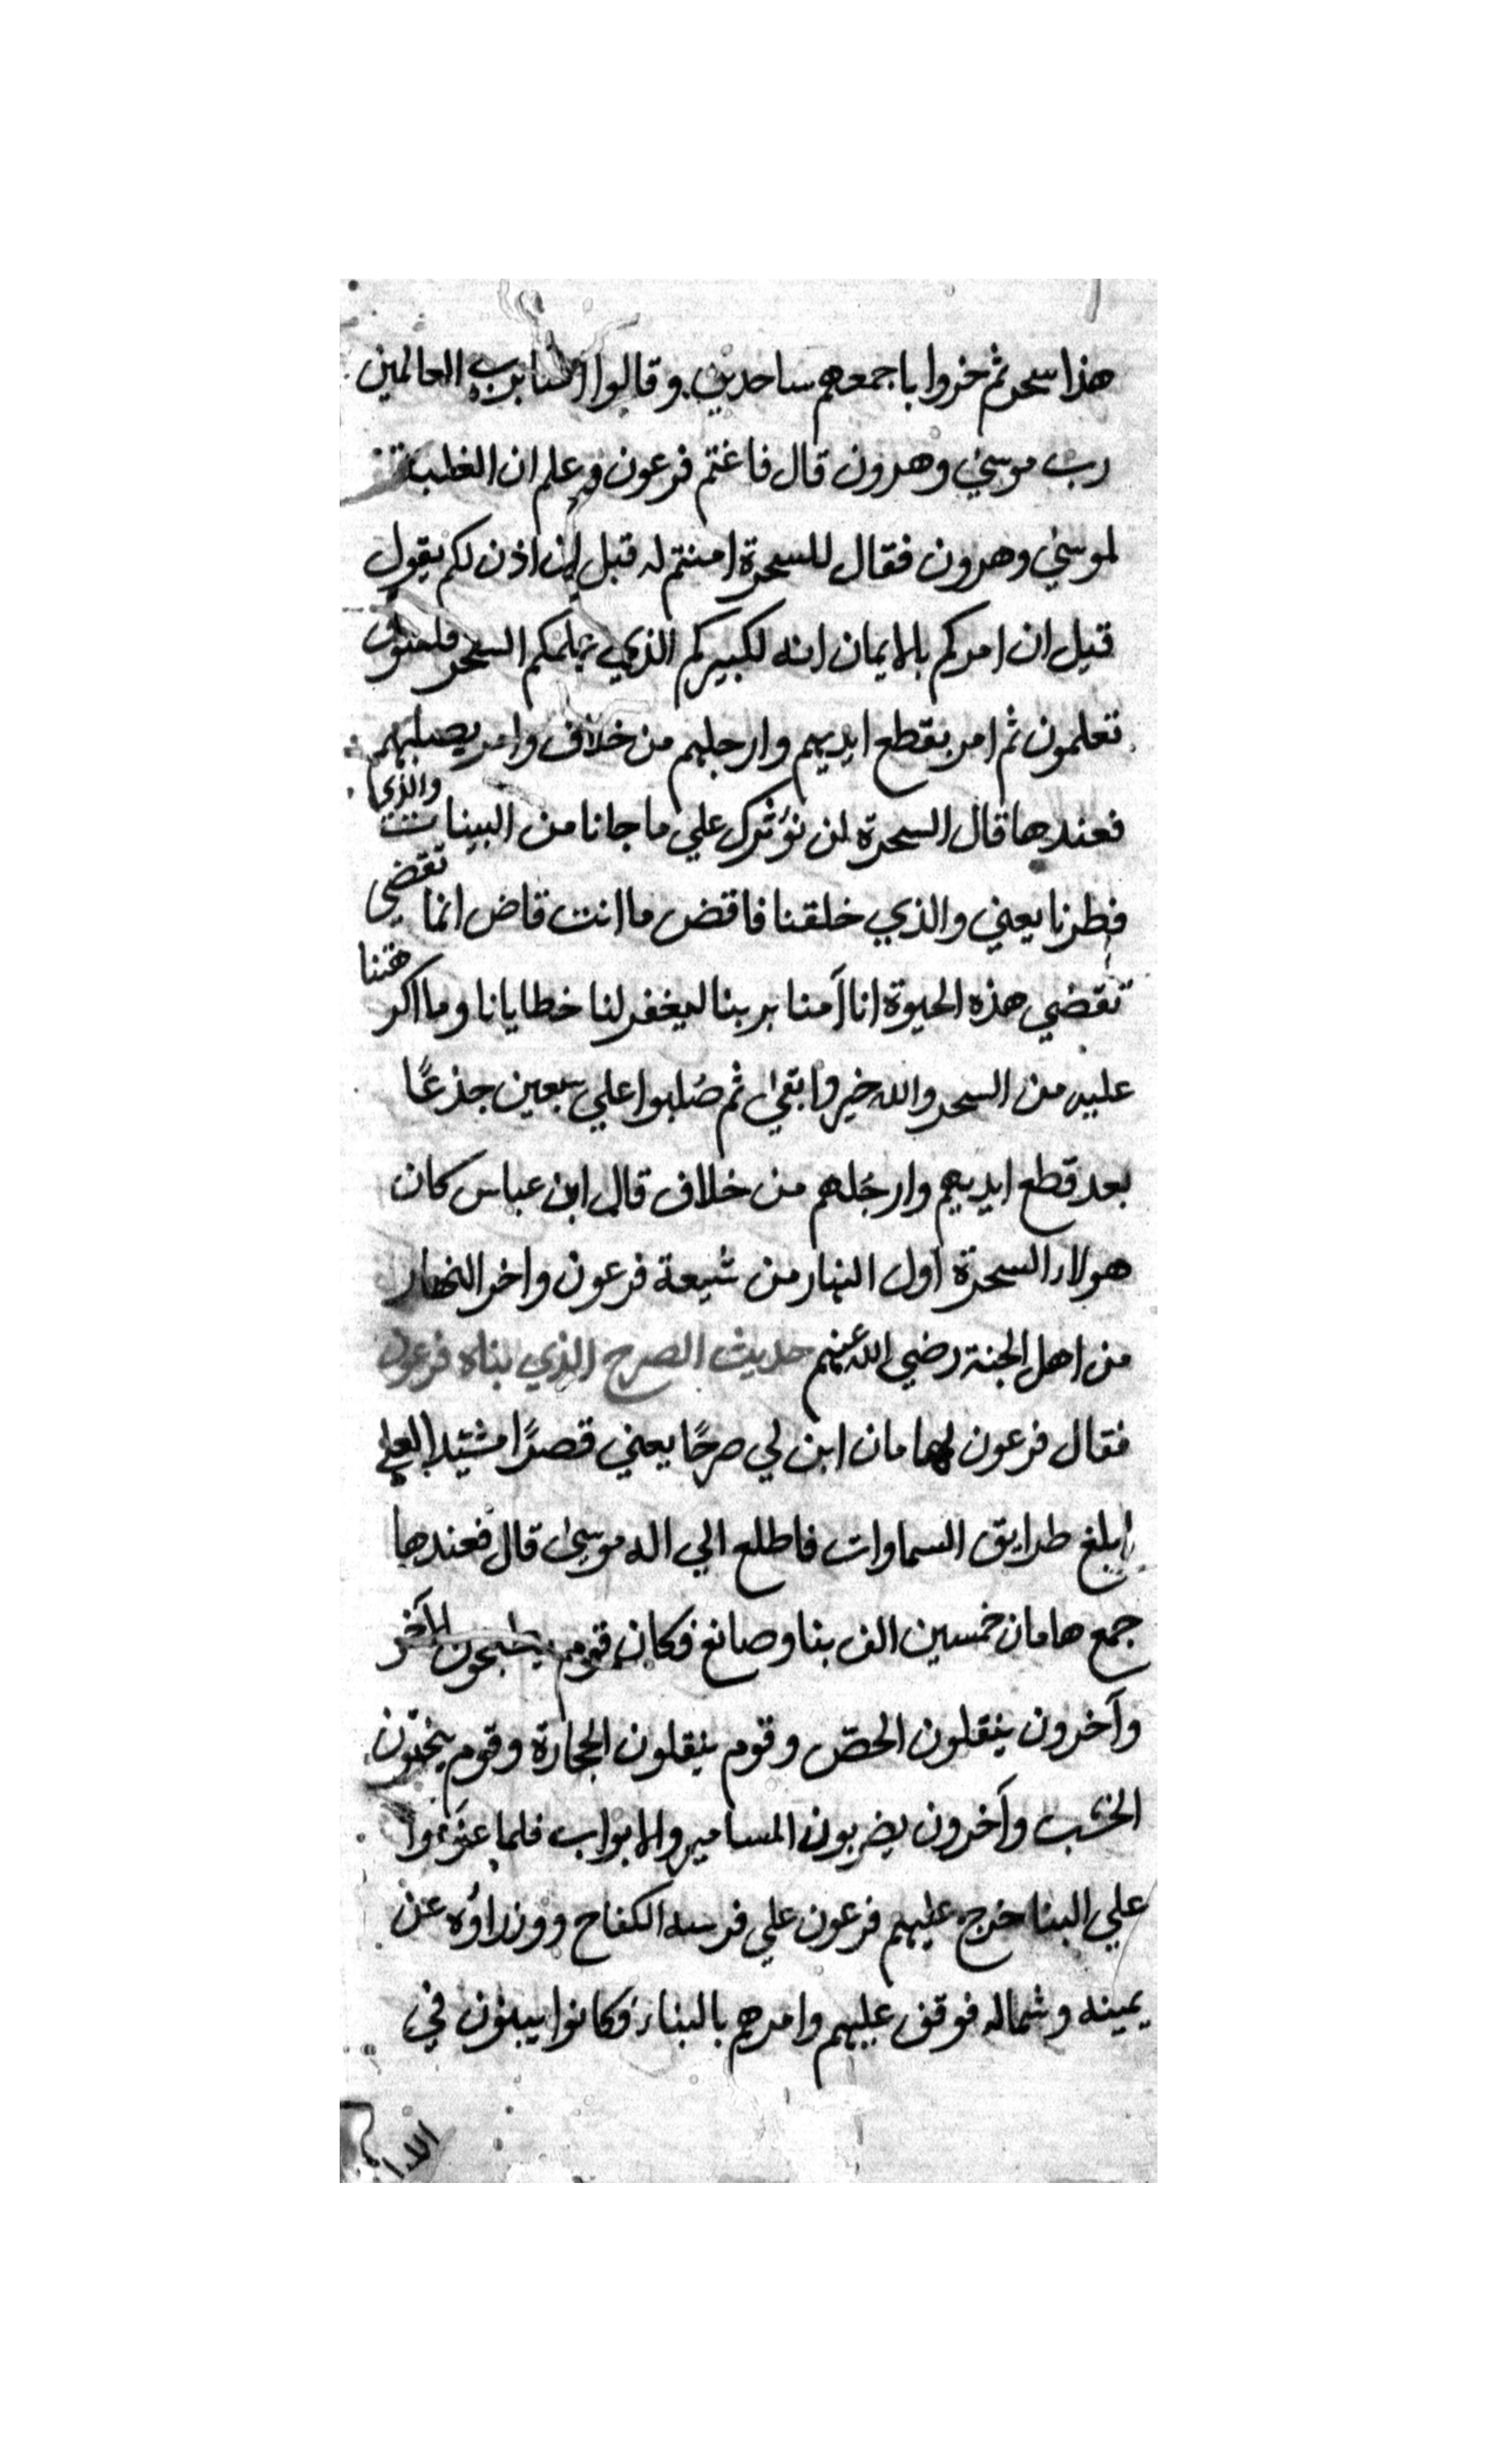 هذا سحر ثم خروا باجمعهم ساجدين وقالوا امنا برب العالمين
رب موسي وهرون قال فاغتم فرعون وعلم ان الغلبة
لموسي وهرون فقال للسحرة امنتم له قبل ان اذن لكم يقول
قبل ان امركم بالايمان انه لكبيركم الذي علمكم السحر فلسوف
تعلمون ثم امر بقطع ايديهم وارجلهم من خلاف وامر بصلبهم
فعندها قال السحرة لن نؤثرك علي ما جانا من البينات والذي
فطرنا يعني والذي خلقنا فاقض ما انت قاض انما تقضي
تقضي هذه الحيوة انا آمنا بربنا ليغفر لنا خطايانا وما اكرهتنا
عليه من السحر والله خير وابقي ثم صُلبوا علي سبعين جذعًا
بعد قطع ايديهم وارجُلهم من خلاف قال ابن عباس كان
هولاء السحرة اول النهار من شيعة فرعون واخر النهار
من اهل الجنة رضي الله عنهم حديث الصرح الذي بناه فرعون
فقال فرعون لهامان ابن لي صرحًا يعني قصرًا مشيّدا لعلي
ابلغ طرايق السماوات فاطلع الي اله موسىٰ قال فعندها
جمع هامان خمسين الف بنا وصانع فكان قوم يطبخون الآجر
وآخرون ينقلون الجصّ وقوم ينقلون الحجارة وقوم ينحتون
الخشب وآخرون يضربون المسامير والابواب فلما عزَموا
علي البنا خرج عليهم فرعون علي فرسه الكفاح ووزراؤه عن
يمينه وشماله فوقف عليهم وامرهم بالبناء فكانوا يبنون في